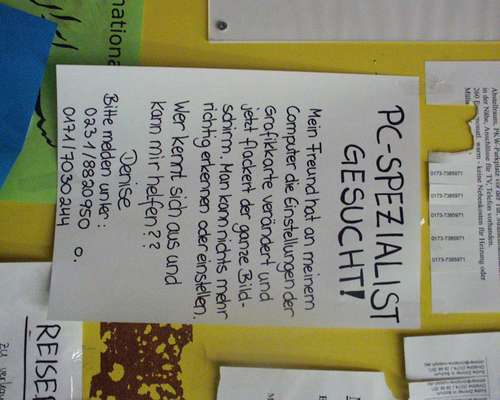 PC-SPEZIALIST
GESUCHT!
Mein Freund hat an meinem
Computer die Einstellungen der
Grafikkarte verändert und
jetzt flackert der ganze Bild-
schirm. Man kann nichts mehr
richtig erkennen oder einstellen.
Wer kennt sich aus und
kann mir helfen??
Denise
Bitte melden unter:
0231/8820950 o.
0171/7030244
national
in der Nähe, Anschlüsse für TV, Telefon vorhanden.
0173-7385971
0173-7385971
0173-7385971
0173-7385971
REISE
zu verkau